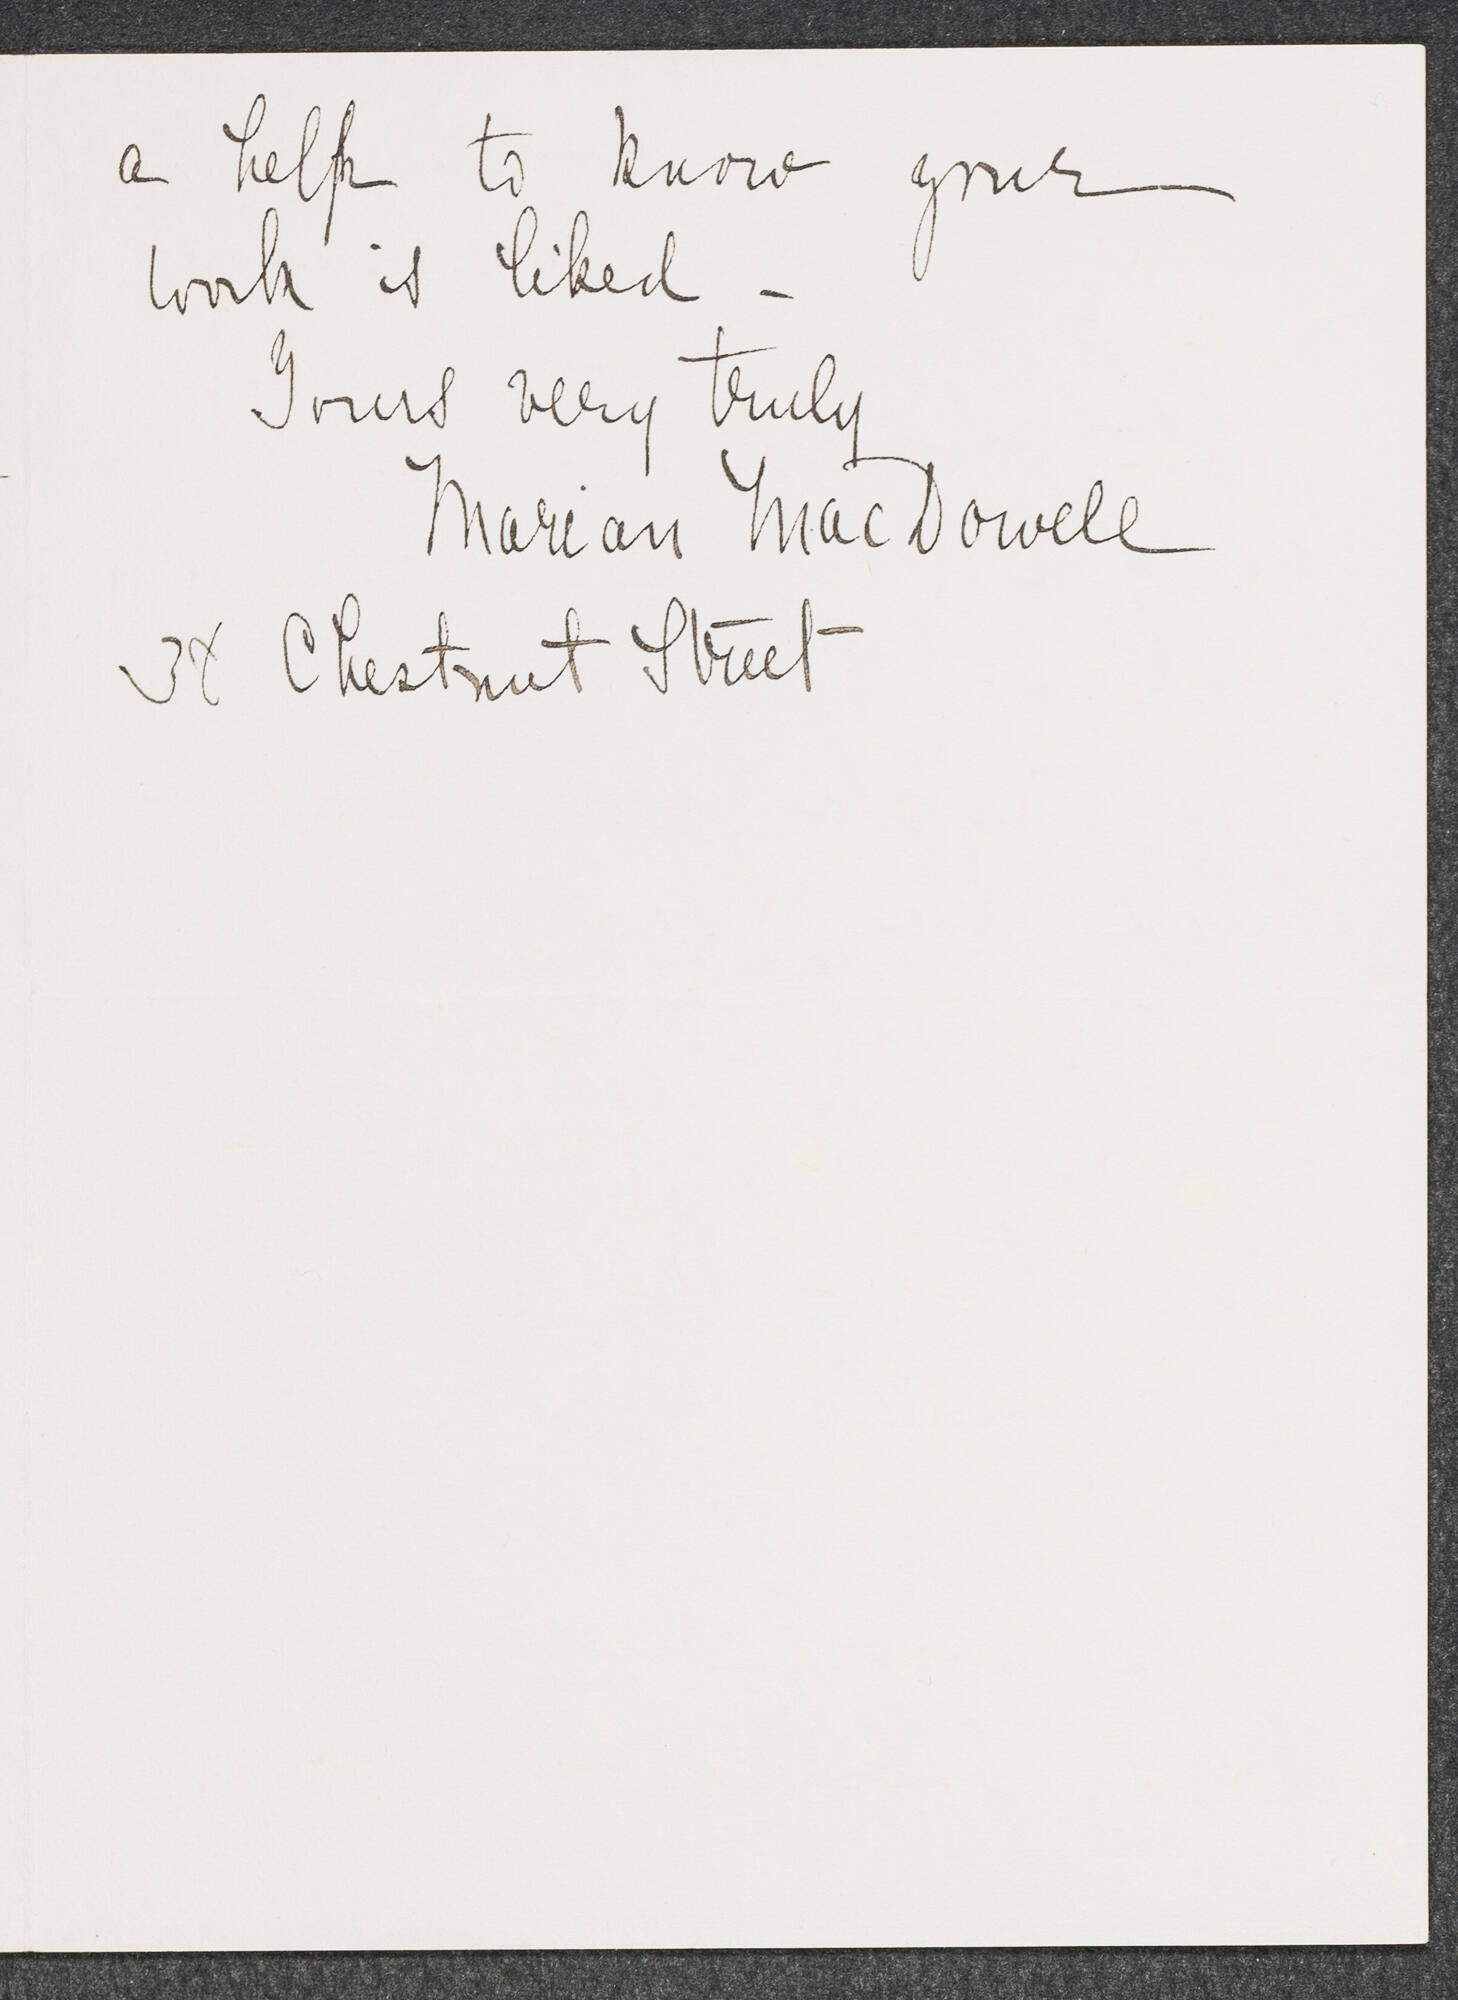 a help to know your
work is liked -
Yours very truly
Marian MacDowell
38 Chestnut Street